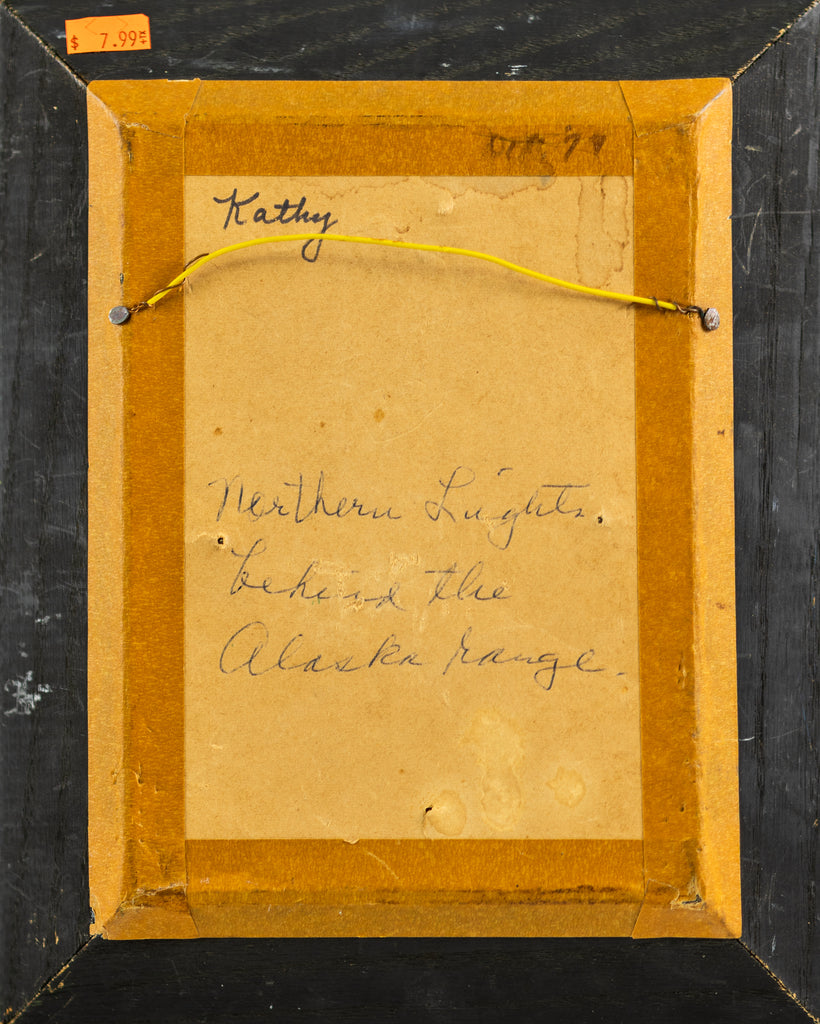 $ 7.99
'79
Kathy
Northern Lights.
behind the
Alaska range.